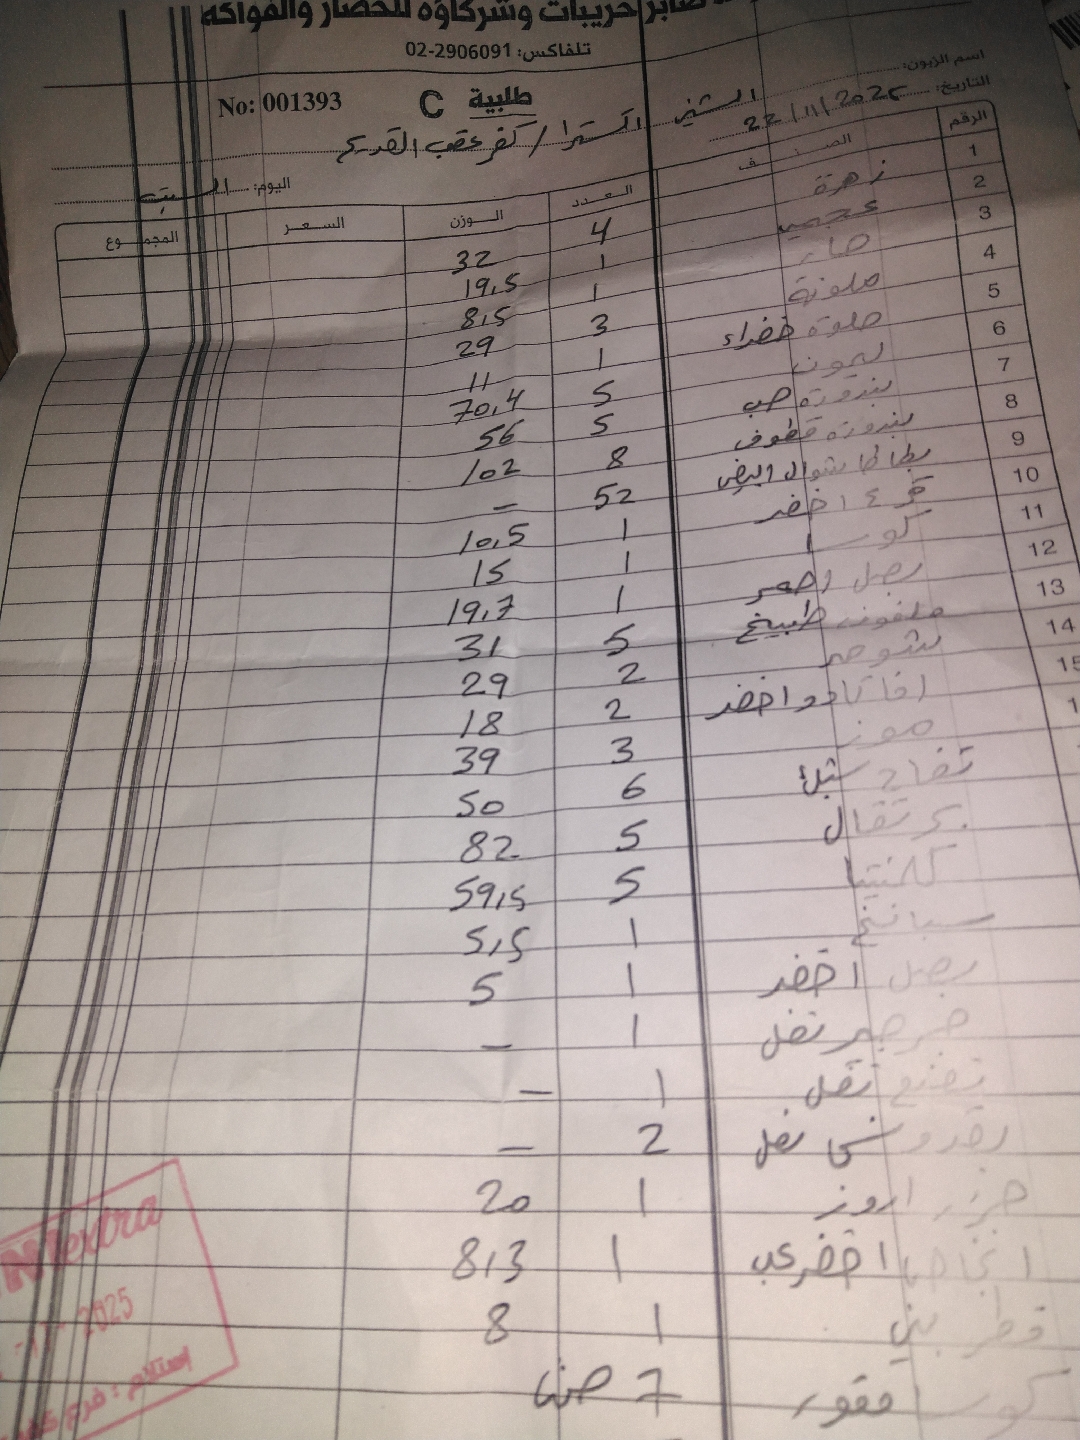 صابر حريبات وشركاؤه للخضار والفواكه
تلفاكس: 02-2906091
اسم الزبون:
No: 001393 C طلبية
التاريخ: 22/11/2025
الشني اكسترا / كفر عقب القديم
اليوم: السبت
الرقم الصنف العدد الوزن السعر المجموع
1 زهرة 4 32
2 عجمي 1 19,5
3 حار 1 8,5
4 ملونة 3 29
5 حلوة خضراء 1 11
6 ليمون 5 70,4
7 بندورة حب 5 56
8 بندورة قطوف 8 102
9 بطاطا شوال ابيض 52 –
10 قرع اخضر 1 10,5
11 كوسا 1 15
12 بصل احمر 1 19,7
13 ملفوف طبيخ 5 31
14 شومر 2 29
15 افاكادو اخضر 2 18
موز 3 39
تفاح ستبل 6 50
برتقال 5 82
كلمنتينا 5 59,5
سبانخ 1 5,5
بصل اخضر 1 5
جرجير نفل 1 –
نعنع نفل 1 –
بقدونس نفل 2 –
جزر اروز 1 20
انجاص اخضر 1 8,3
فطر بني 1 8
كوسا فقوز 7
extra
2025
استلام: فرع كفر